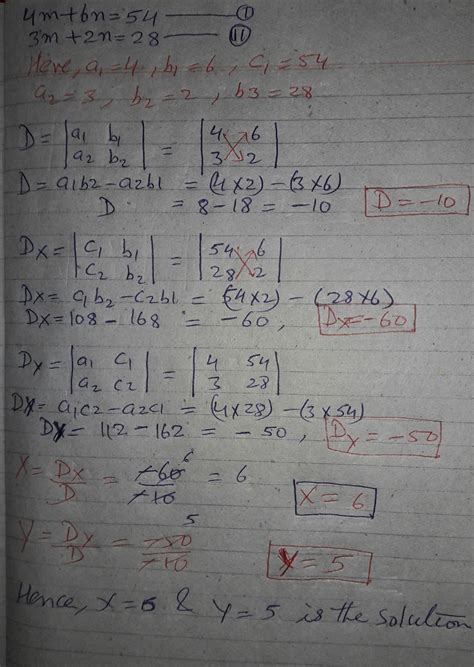 4m+6n=54 —— (I)
3m+2n=28 —— (II)
Here, a1=4, b1=6, c1=54
a2=3, b2=2, b3=28
D= |a1 b1| = |4 6|
|a2 b2| |3 2|
D= a1b2-a2b1 = (4×2)-(3×6)
D = 8-18 = -10 D=-10
Dx= |c1 b1| = |54 6|
|c2 b2| |28 2|
Dx= c1b2-c2b1 = (54×2)-(28×6)
Dx=108-168 = -60, Dx=-60
Dy= |a1 c1| = |4 54|
|a2 c2| |3 28|
Dy= a1c2-a2c1 = (4×28)-(3×54)
Dy= 112-162 = -50, Dy=-50
X= Dx/D = -60/-10 6 = 6 X=6
Y= Dy/D = -50/-10 5 Y=5
Hence, x=6 & y=5 is the solution